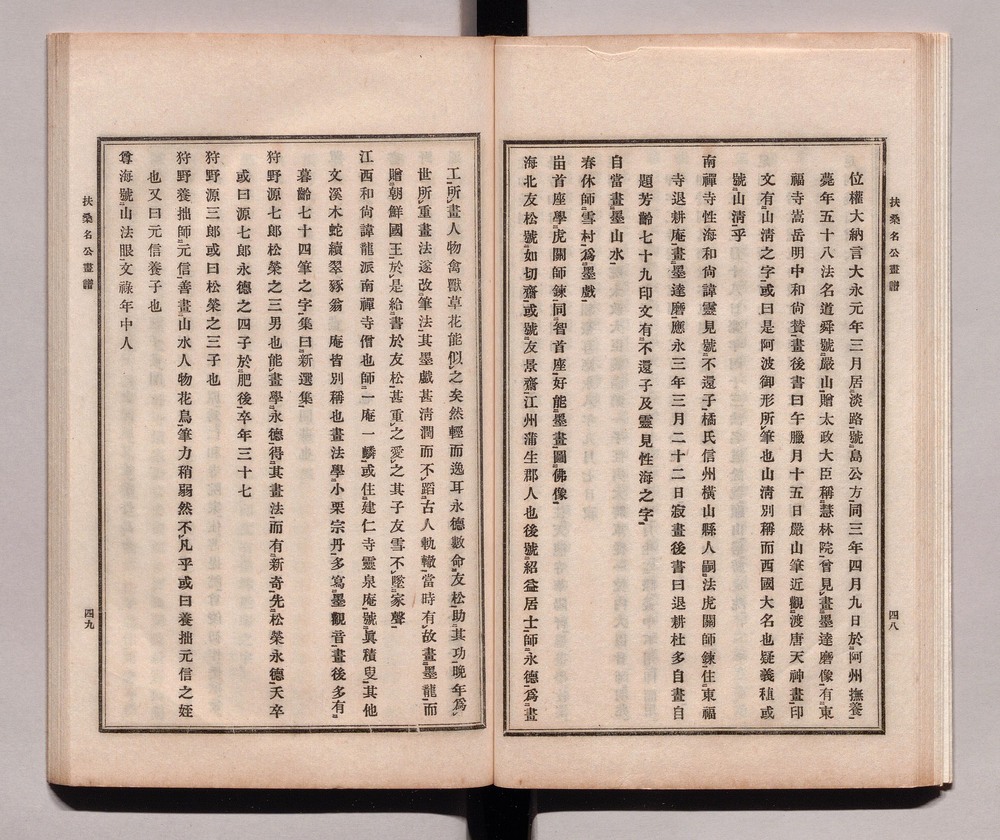 扶桑名公畫譜
四八
位權大納言大永元年三月居淡路號島公方同三年四月九日於阿州撫養
薨年五十八法名道舜號嚴山贈太政大臣稱慧林院曾見畫墨達磨像有東
福寺嵩岳明中和尙贊畫後書曰午臘月十五日嚴山筆近觀渡唐天神畫印
文有山淸之字或曰是阿波御形所筆也山淸別稱而西國大名也疑義稙或
號山淸乎
南禪寺性海和尙諱靈見號不還子橘氏信州橫山縣人嗣法虎關師鍊住東福
寺退耕庵畫墨達磨應永三年三月二十二日寂畫後書曰退耕杜多自畫自
題芳齡七十九印文有不還子及靈見性海之字
自當畫墨山水
春休師雪村爲墨戲
首座學虎關師鍊同智首座好能墨畫圖佛像
海北友松號如切齋或號友景齋江州蒲生郡人也後號紹益居士師永德爲畫
工所畫人物禽獸草花能似之矣然輕而逸耳永德數命友松助其功晚年爲
世所重畫法遂改筆法其墨戲甚淸潤而不蹈古人軌轍當時有故畫墨龍而
贈朝鮮國王於是給書於友松甚重之愛之其子友雪不墜家聲
江西和尙諱龍派南禪寺僧也師一庵一麟或住建仁寺靈泉庵號眞積叟其他
文溪木蛇續翠豩翁庵皆別稱也畫法學小栗宗丹多寫墨觀音畫後多有
暮齡七十四筆之字集曰新選集
狩野源七郎松榮之三男也能畫學永德得其畫法而有新奇先松榮永德夭卒
或曰源七郎永德之四子於肥後卒年三十七
狩野源三郎或曰松榮之三子也
狩野養拙師元信善畫山水人物花鳥筆力稍弱然不凡乎或曰養拙元信之姪
也又曰元信養子也
尊海號山法眼文祿年中人
扶桑名公畫譜
四九